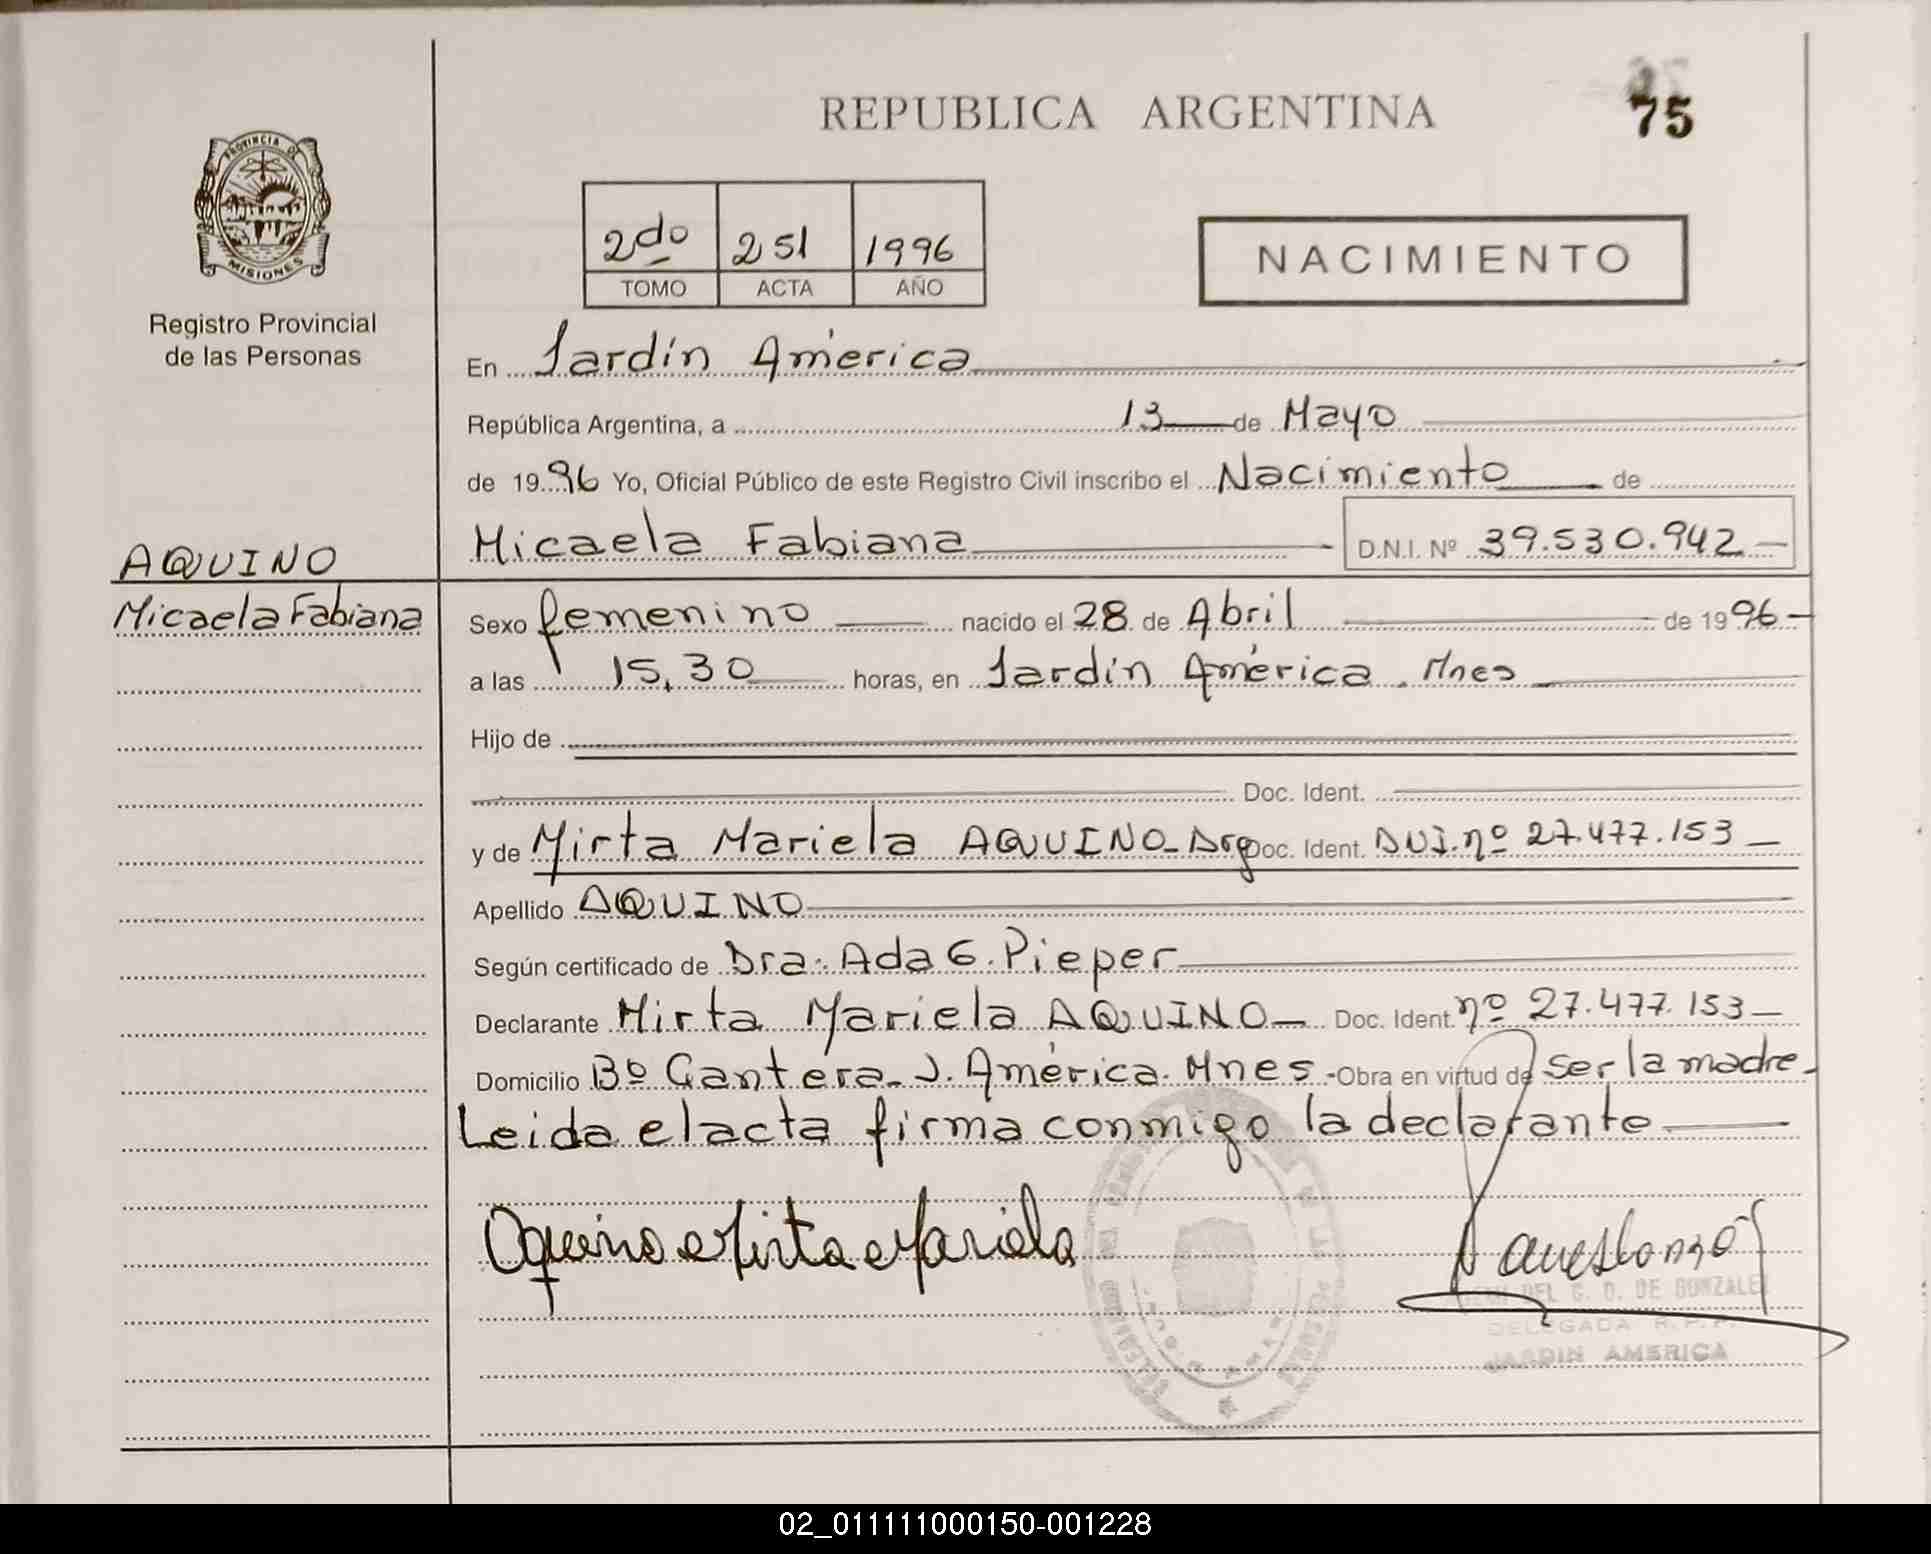 REPUBLICA ARGENTINA
75
PROVINCIA DE
MISIONES
Registro Provincial
de las Personas
2do 251 1996
TOMO ACTA AÑO
NACIMIENTO
En Jardín América
República Argentina, a 13 de Mayo
de 1996 Yo, Oficial Público de este Registro Civil inscribo el Nacimiento de
Micaela Fabiana D.N.I. Nº 39.530.942
AQUINO
Micaela Fabiana
Sexo femenino nacido el 28 de Abril de 1996
a las 15,30 horas, en Jardín América. Mnes
Hijo de
Doc. Ident.
y de Mirta Mariela AQUINO - Arg Doc. Ident. DNI. nº 27.477.153
Apellido AQUINO
Según certificado de Dra. Ada G. Pieper
Declarante Mirta Mariela AQUINO Doc. Ident. nº 27.477.153
Domicilio Bº Cantera. J. América. Mnes - Obra en virtud de ser la madre
Leida el acta firma conmigo la declarante
Aquino Mirta Mariela
DEL C. D. DE GONZALEZ
DELEGADA R.P.P.
JARDIN AMERICA
02_011111000150-001228